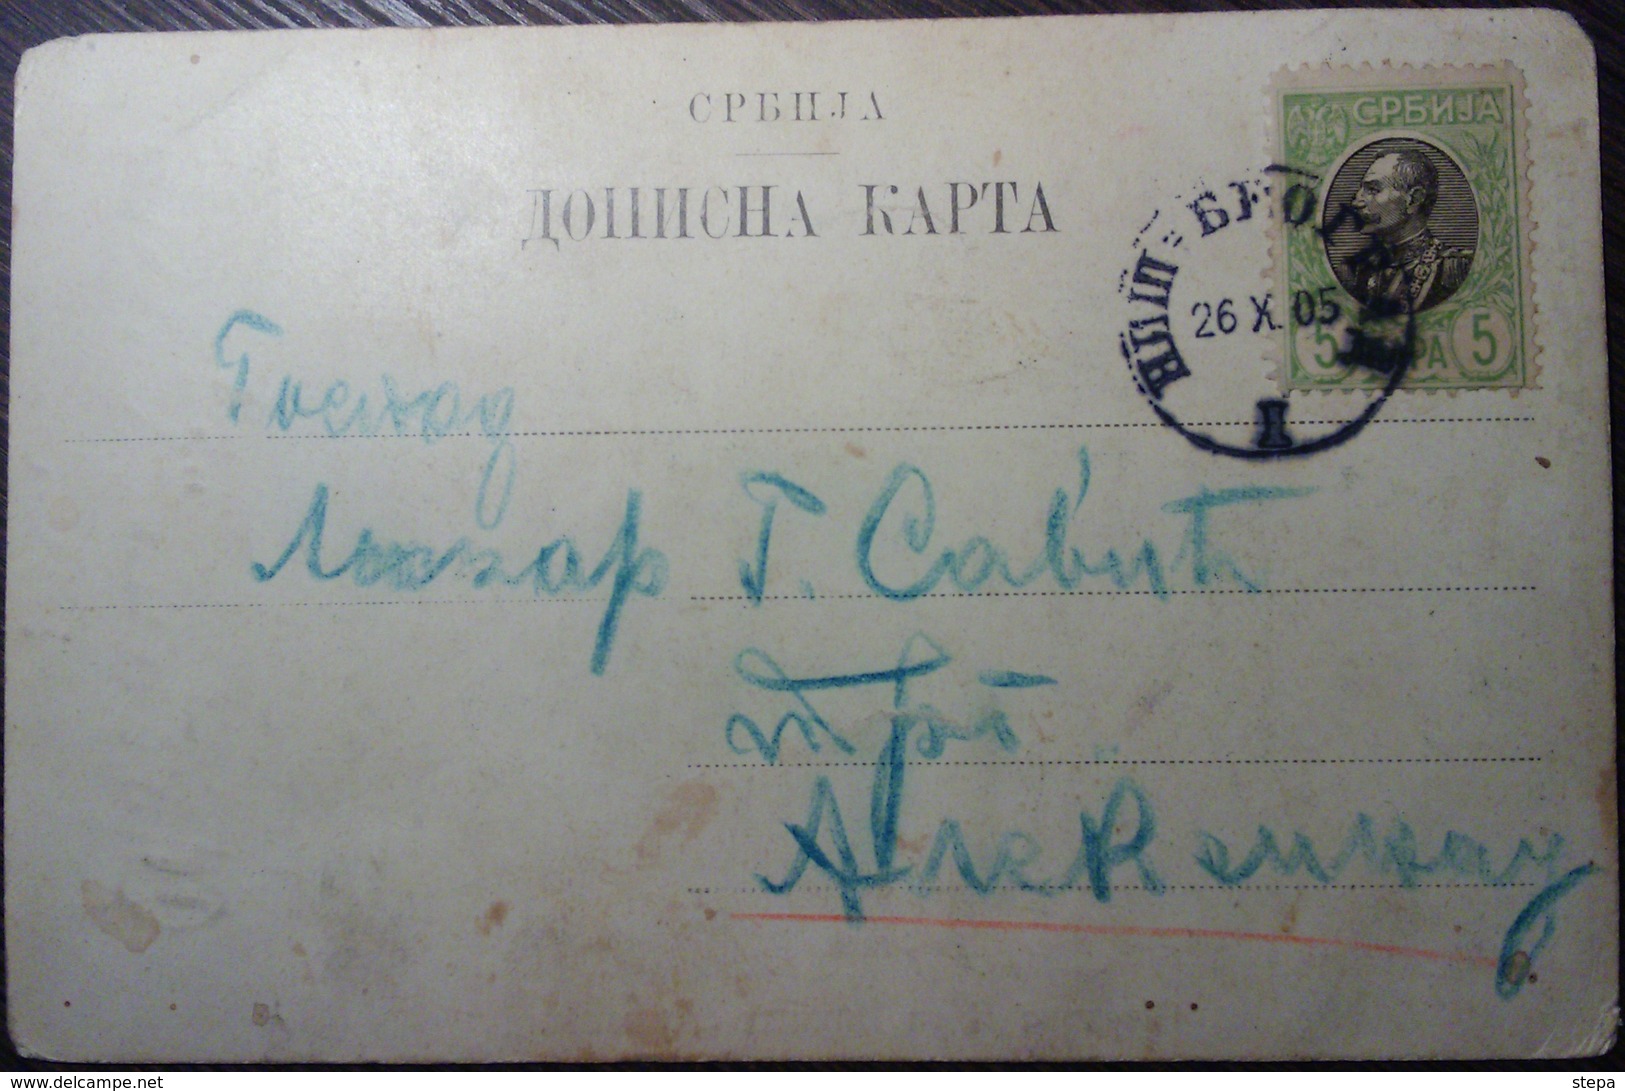 СРБИЈА
ДОПИСНА КАРТА
СРБИЈА
5 ПАРА 5
БЕОГРАД
26 X. 05
1
Господ
Лазар Г. Савић
трг.
Алексинац
www.delcampe.net
stepa